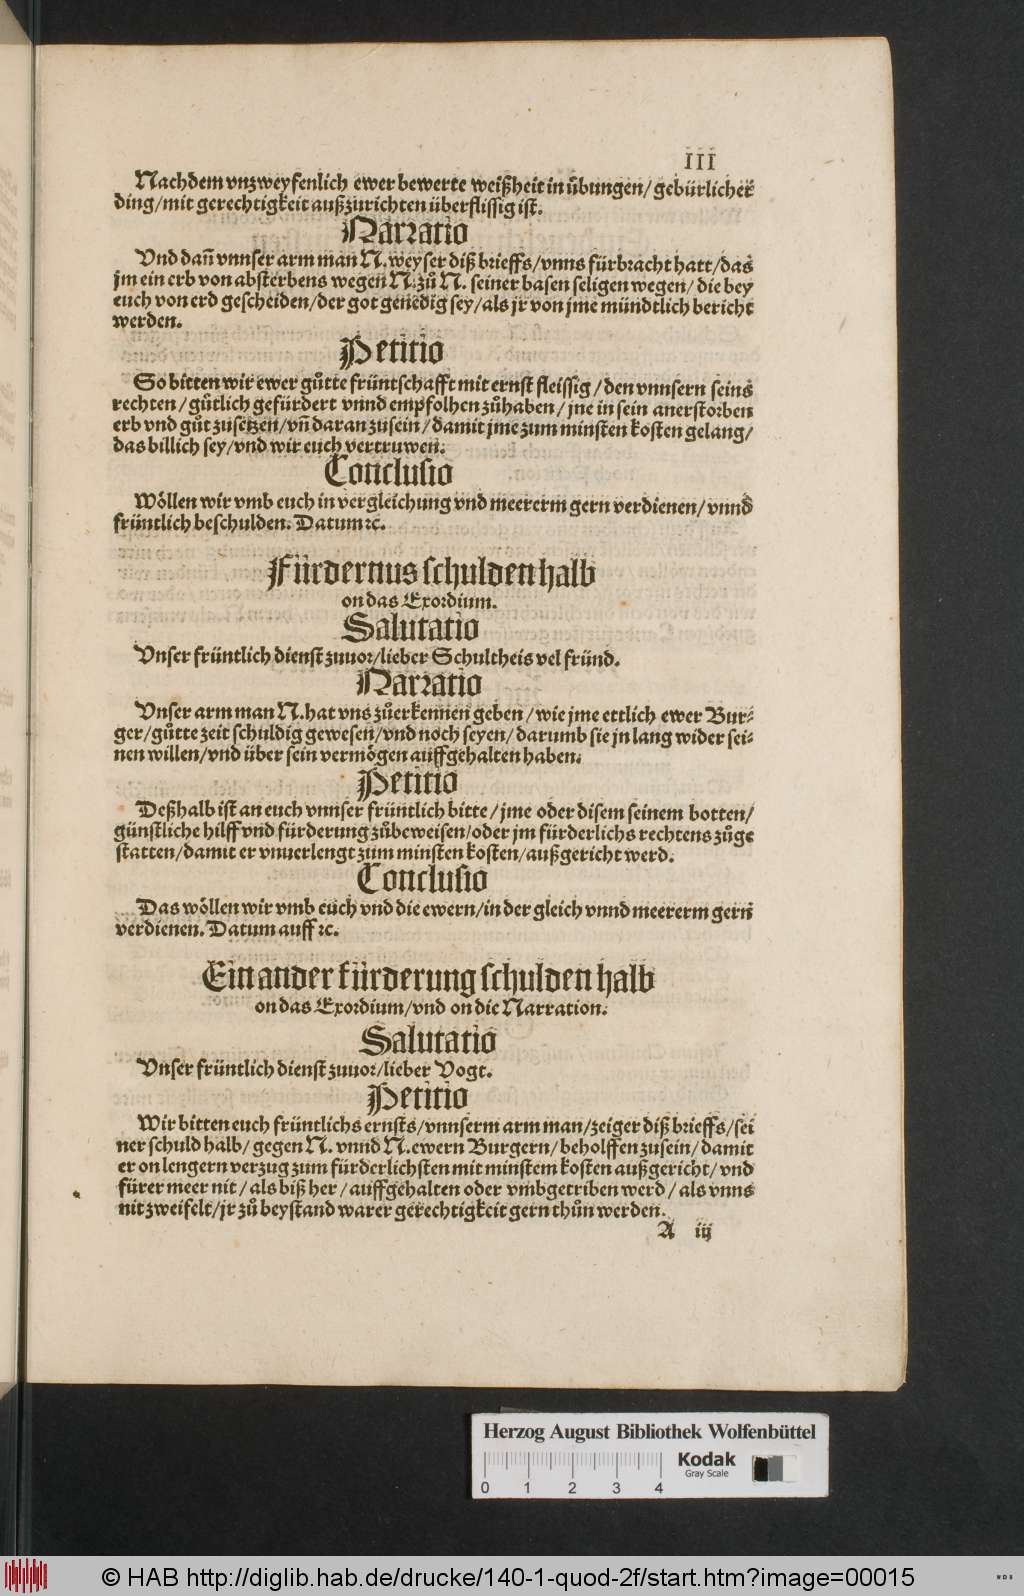 III
Nachdem vnzweyfenlich ewer bewerte weißheit in übungen/ gebürlicher
ding/ mit gerechtigkeit außzurichten überflissig ist.
Narratio
Vnd dañ vnnser arm man N. weyser diß brieffs/ vnns fürbracht hatt/ das
jm ein erb von absterbens wegen N. zů N. seiner basen seligen wegen/ die bey
euch von erd gescheiden/ der got genedig sey/ als jr von jme mündtlich bericht
werden.
Petitio
So bitten wir ewer gůtte früntschafft mit ernst fleissig/ den vnnsern seins
rechten/ gůtlich gefürdert vnnd empfolhen zůhaben/ jne in sein anerstorben
erb vnd gůt zusetzen/ vñ daran zusein/ damit jme zum minsten kosten gelang/
das billich sey/ vnd wir euch vertruwen.
Conclusio
Wöllen wir vmb euch in vergleichung vnd meererm gern verdienen/ vnnd
früntlich beschulden. Datum ꝛc.
Fürdernus schulden halb
on das Exordium.
Salutatio
Vnser früntlich dienst zuuor/ lieber Schultheis vel fründ.
Narratio
Vnser arm man N. hat vns zůerkennen geben/ wie jme ettlich ewer Bur⸗
ger/ gůtte zeit schuldig gewesen/ vnd noch seyen/ darumb sie jn lang wider sei⸗
nen willen/ vnd über sein vermögen auffgehalten haben.
Petitio
Deßhalb ist an euch vnnser früntlich bitte/ jme oder disem seinem botten/
günstliche hilff vnd fürderung zůbeweisen/ oder jm fürderlichs rechtens zůge
statten/ damit er vnuerlengt zum minsten kosten/ außgericht werd.
Conclusio
Das wöllen wir vmb euch vnd die ewern/ in der gleich vnnd meererm gern
verdienen. Datum auff ꝛc.
Ein ander fürderung schulden halb
on das Exordium/ vnd on die Narration.
Salutatio
Vnser früntlich dienst zuuor/ lieber Vogt.
Petitio
Wir bitten euch früntlichs ernsts/ vnnserm arm man/ zeiger diß brieffs/ sei
ner schuld halb/ gegen N. vnnd N. ewern Burgern/ beholffen zusein/ damit
er on lengern verzug zum fürderlichsten mit minstem kosten außgericht/ vnd
fürer meer nit/ als biß her/ auffgehalten oder vmbgetriben werd/ als vnns
nit zweifelt/ jr zů beystand warer gerechtigkeit gern thůn werden.
A iij
Herzog August Bibliothek Wolfenbüttel
0 1 2 3 4
Kodak
Gray Scale
© HAB http://diglib.hab.de/drucke/140-1-quod-2f/start.htm?image=00015